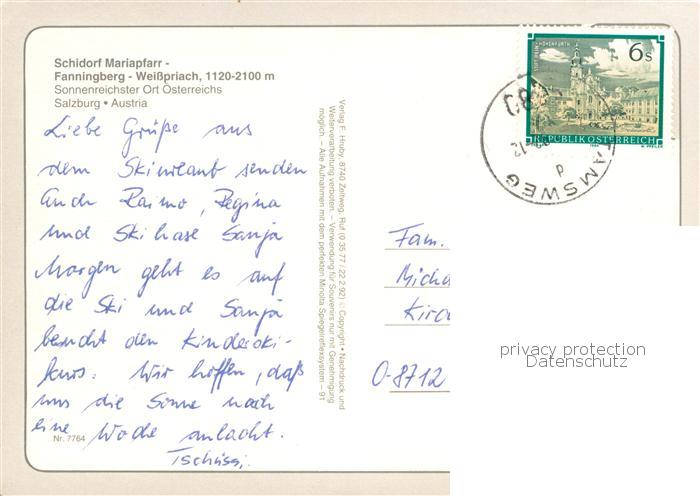 Schidorf Mariapfarr -
Fanningberg - Weißpriach, 1120-2100 m
Sonnenreichster Ort Österreichs
Salzburg • Austria
Liebe Grüße aus
dem Skiurlaub senden
Euch Raimo, Regina
und Skihase Sanja
Morgen geht es auf
die Ski und Sanja
besucht den Kinderski-
kurs. Wir hoffen, daß
uns die Sonne noch
eine Woche anlacht.
Tschüss.
Nr. 7764
Verlag F. Hruby, 8740 Zeltweg, Ruf (0 35 77 / 22 2 92) © Copyright • Nachdruck und
Weiterverarbeitung verboten. – Verwendung für Souvenirs nur mit Genehmigung
möglich. – Alle Aufnahmen mit dem perfekten Minolta Spiegelreflexsystem – 91
STIFT REIN-HOHENFURTH
6s
REPUBLIK ÖSTERREICH
TAMSWEG
Fam.
Micha
Kirc
O-8712
privacy protection
Datenschutz